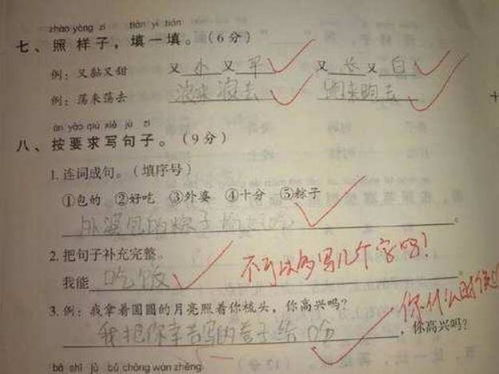 zhào yàng zi tián yi tián
七、照 样子，填一填。(6分)
例：又黏又甜 又小又平 又长又白
例：荡来荡去 滚来滚去 跑来跑去
àn yāo qiú xiě jù zi
八、按要求写句子。(9分)
1. 连词成句。(填序号)
①包的 ②好吃 ③外婆 ④十分 ⑤粽子
外婆包的粽子十分好吃
2. 把句子补充完整。
我能 吃饭 不可以多写几个字吗？
3. 例：我拿着圆圆的月亮照着你梳头，你高兴吗？
你什么时候
我把你辛苦写的卷子给，你高兴吗？
bǎ shī jù bǔ chōng wán zhěng